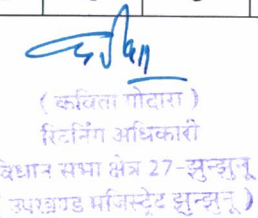 ( कविता गोदारा )
रिटर्निंग अधिकारी
विधान सभा क्षेत्र 27-झुन्झुनू
उपखण्ड मजिस्ट्रेट झुन्झुनू )